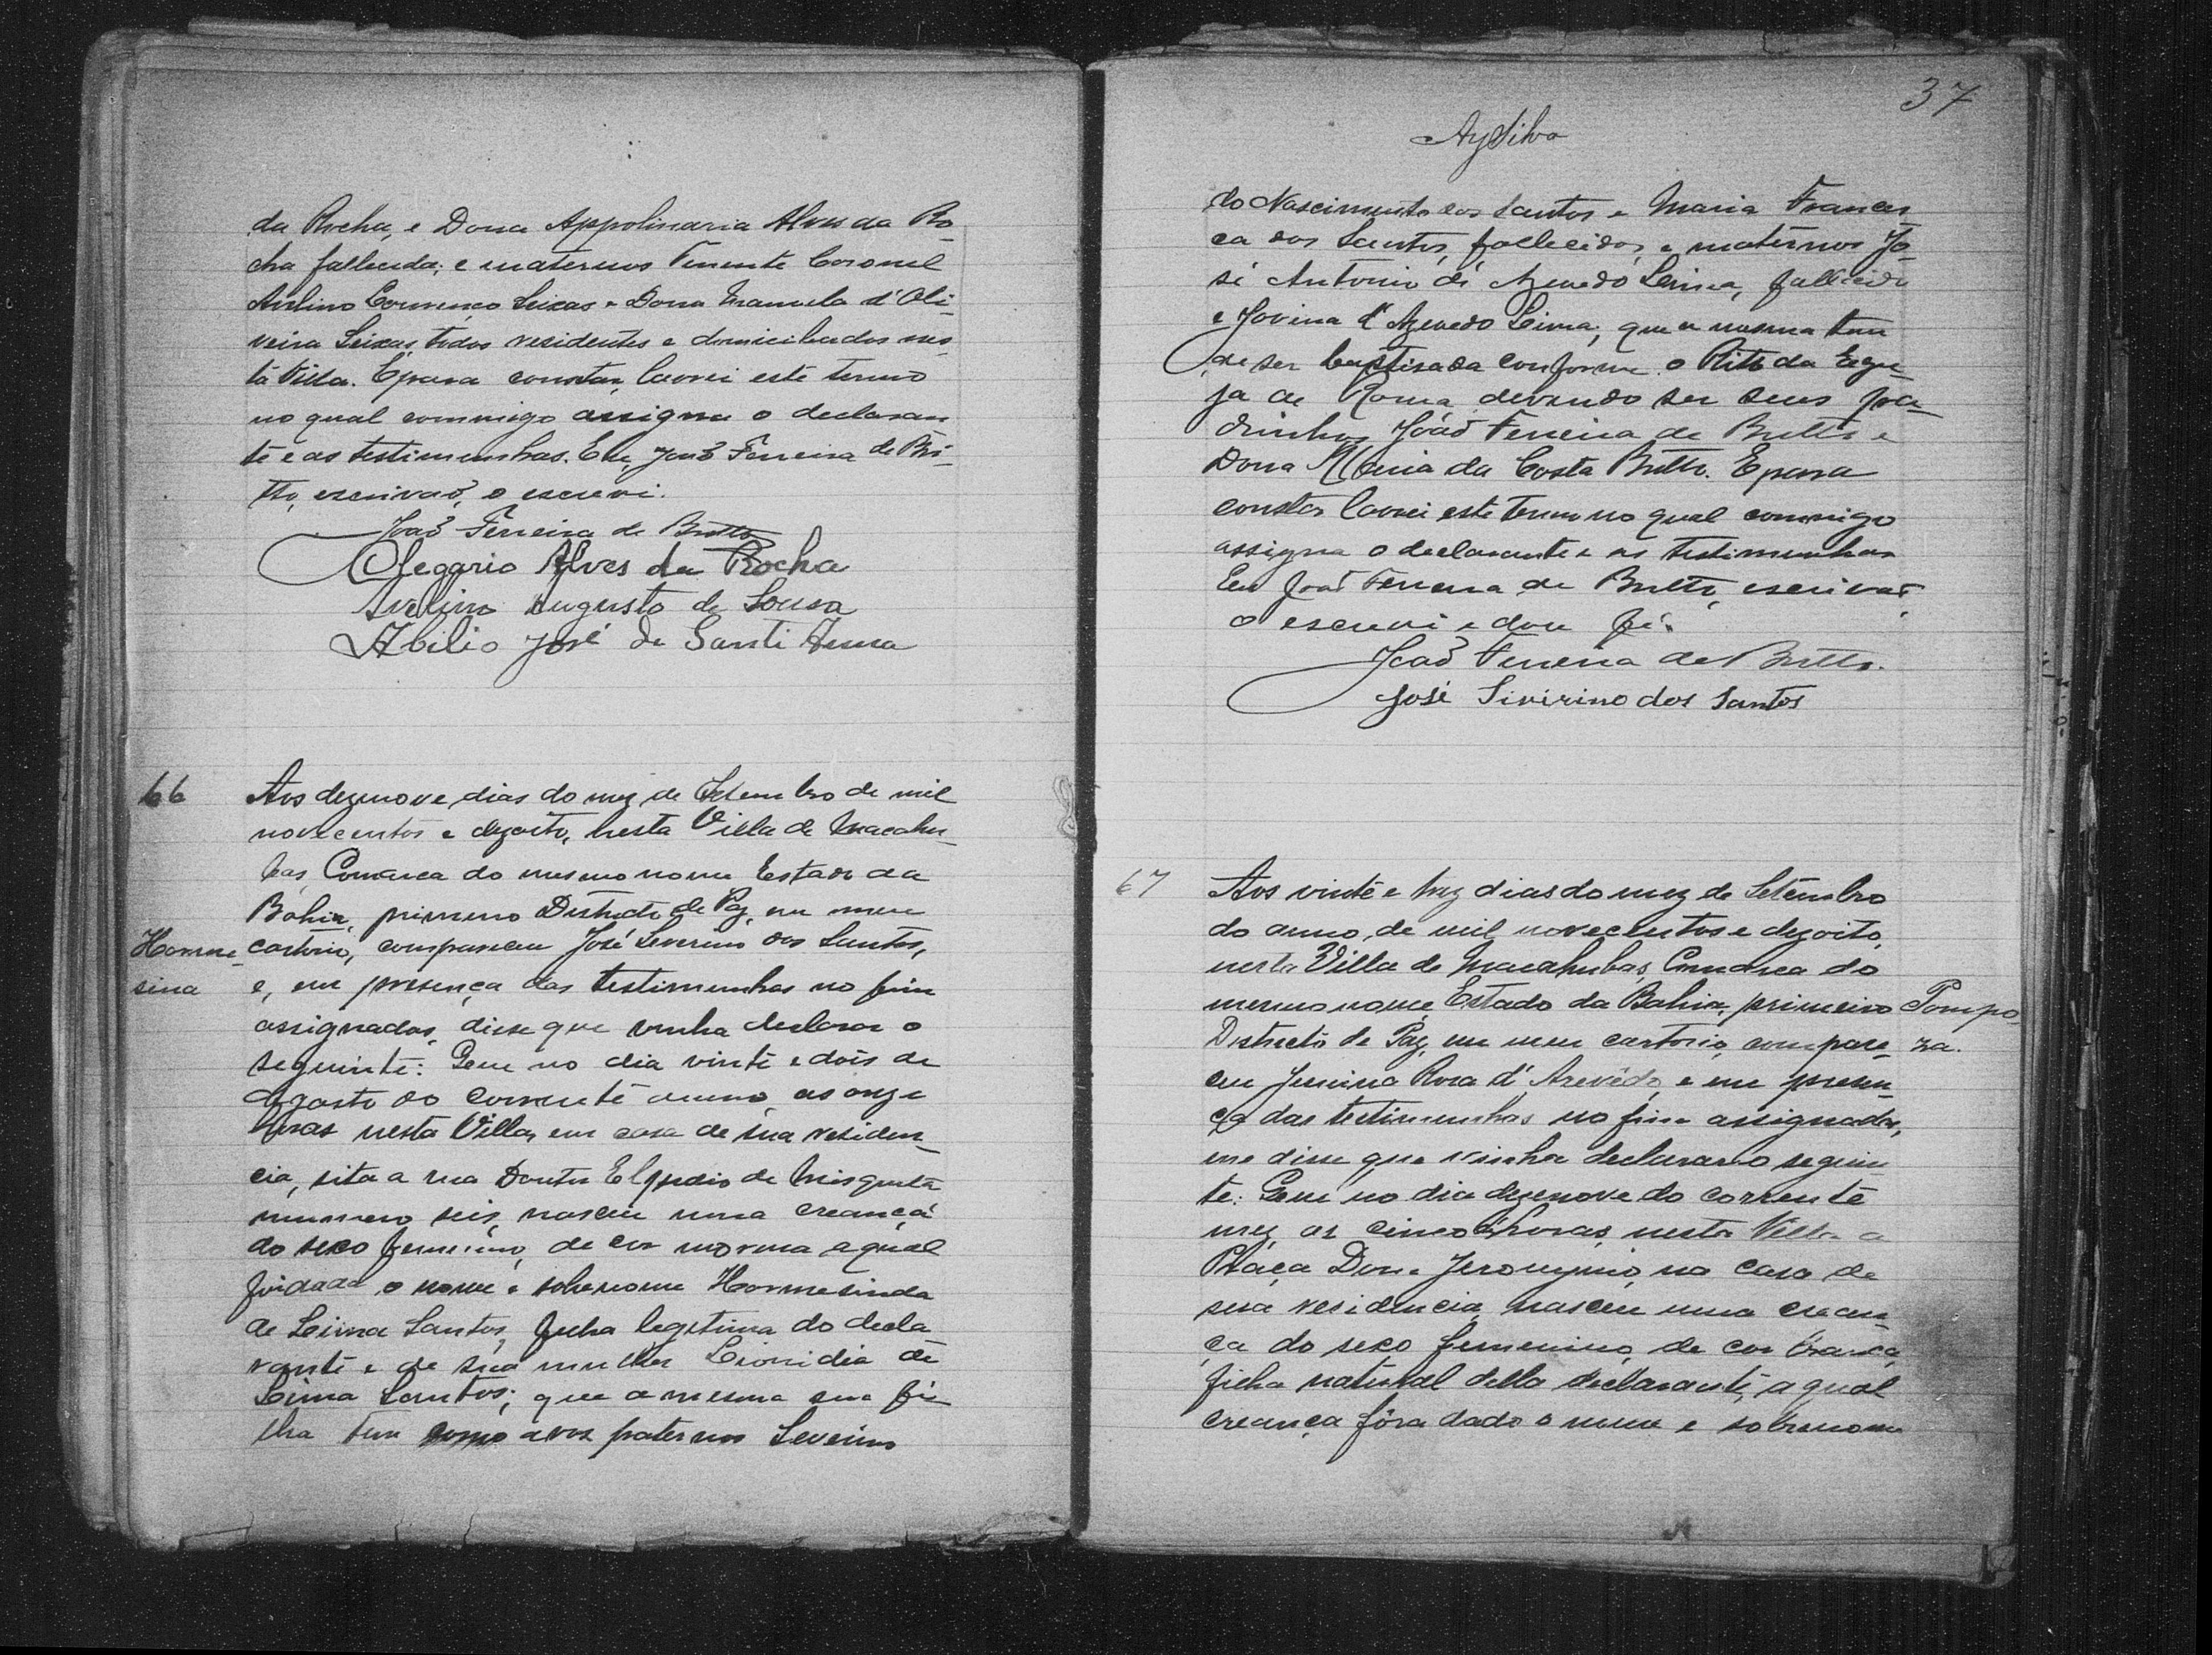 da Rocha, e Dona Appolinaria Alves da Ro-
cha fallecida; e maternos Tenente Coronel
Avelino Lourenço Seixas e Dona Manuela d'Oli-
veira Seixas, todos residentes e domiciliados nes-
ta Villa. E para constar, lavrei este termo
no qual commigo assigna o declaran
te e as testimunhas. Eu, João Ferreira de Bri-
tto, escrivaõ, o escrevi.
Joaõ Ferreira de Britto
Olegario Alves da Rocha
Avelino Augusto de Sousa
Abilio José de Santi Anna
66
Aos dezenove dias do mez de Setembro de mil
novecentos e dezoito, nesta Villa de Macahu-
bas, Comarca do mesmo nome Estado da
Bahia, primeiro Districto de Paz, em meu
Horme-
sina
cartorio, compareceu José Severino dos Santos,
e, em presença das testimunhas no fim
assignadas, disse que vinha declarar o
seguinte: Que no dia vinte e dois de
Agosto do corrente anno, as onze
horas nesta Villa, em casa de sua residen-
cia, sita a rua Doutor de Mesquita
numero seis, nasceu uma creança
do sexo femenino, de cor morena a qual
foi dado o nome e sobrenome Hormesinda
de Lima Santos, filha legitima do decla
rante e de sua mulher Leonidia de
Lima Santos; que a mesma sua fi-
lha tem como avos paternos Severino
37
AySilva
do Nascimento dos Santos e Maria Francis
ca dos Santos, fallecidos, e maternos Jo-
sé Antonio de Azevedo Lima, fallecido
e Jovina d'Azevedo Lima; que a mesma tem
de ser baptisada conforme o Rito da Egre-
ja de Roma devendo ser seus pa-
drinhos João Ferreira de Britto e
Dona Maria da Costa Britto. E para
constar lavrei este termo no qual commigo
assigna o declarante e as testimunhas
Eu João Ferreira de Britto, escrivaõ
o escrevi e dou fé.
Joaõ Ferreira de Britto.
José Sivirino dos Santos
67
Aos vinte e trez dias do mez de Setembro
do anno de mil novecentos e dezoito,
nesta Villa de Macahubas, Comarca do
mesmo nome, Estado da Bahia, primeiro
Pompo-
za.
Districto de Paz, em meu cartorio, compare-
ceu Rosa d'Azevêdo, e em presen-
ça das testimunhas no fim assignadas,
me disse que vinha declarar o seguin
te: Que no dia dezenove do corrente
mez, as cinco horas, nesta Villa a
Praça Dom Jeronymo, na casa de
sua residencia, nasceu uma crean-
ça do sexo femenino, de cor branca
filha natural della declarante, a qual
creança fôra dado o nome e sobrenome